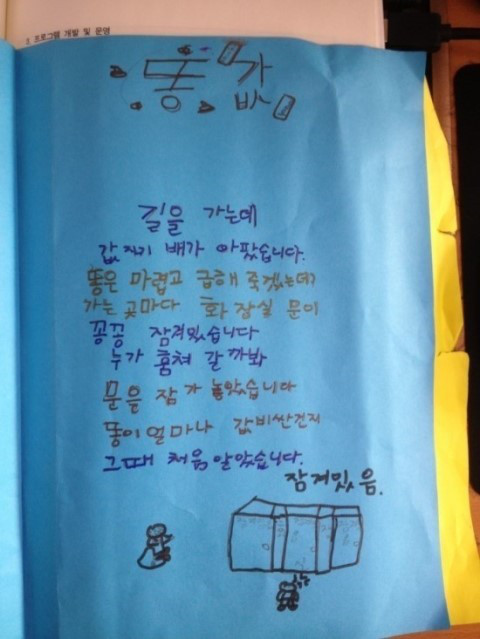 2 프로그램 개발 및 운영
똥값
길을 가는데
갑자기 배가 아팠습니다.
똥은 마렵고 급해 죽겠는데
가는 곳마다 화장실 문이
꽁꽁 잠겨있습니다
누가 훔쳐 갈까봐
문을 잠가 놓았습니다
똥이 얼마나 값비싼건지
그때 처음 알았습니다.
잠겨있음.